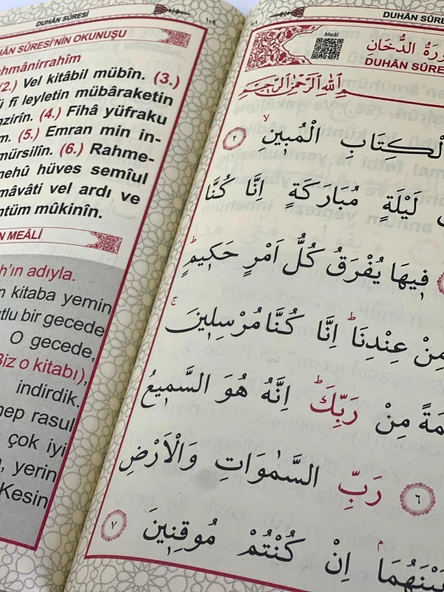 ١٠٩ DUHÂN SÛRESİ
SÛRESİ'NİN OKUNUŞU
(2.) Vel kitâbil mübîn. (3.)
fî leyletin mübâraketin
(4.) Fihâ yüfraku
(5.) Emran min in-
mürsilîn. (6.) Rahme-
hüves semîul
vel ardı ve
mûkinîn.
MEÂLİ
adıyla.
kitaba yemin
bir gecede
O gecede,
Biz o kitabı),
indirdik.
rasul
çok iyi
yerin
Kesin
DUHÂN SÛRE
Meâl
سُورَةُ الدُّخَانِ
DUHÂN SÛRE
بِسْمِ اللّٰهِ الرَّحْمٰنِ الرَّحِيمِ
الْكِتَابِ الْمُبِينِ ٢
لَيْلَةٍ مُبَارَكَةٍ اِنَّا كُنَّا
فِيهَا يُفْرَقُ كُلُّ اَمْرٍ حَكِيمٍ
مِنْ عِنْدِنَا اِنَّا كُنَّا مُرْسِلِينَ
مِنْ رَبِّكَ اِنَّهُ هُوَ السَّمِيعُ
٦ رَبِّ السَّمٰوَاتِ وَالْاَرْضِ
اِنْ كُنْتُمْ مُوقِنِينَ ٧